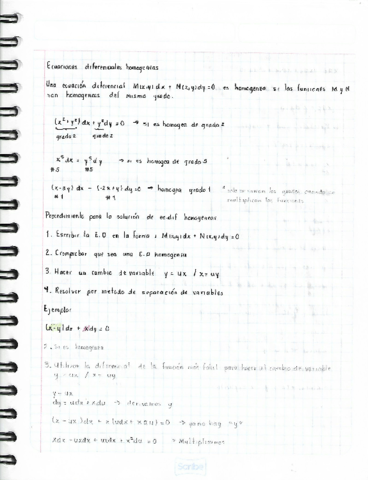 Ecuaciones diferenciales homogeneas
Una ecuación diferencial M(x,y)dx + N(x,y)dy=0 es homogenea si las funciones M y N
son homogeneas del mismo grado.
(x²+y²)dx + y²dy=0 → si es homogea de grado 2
grado 2 grado 2
x⁵dx = y⁵dy → si es homogea de grado 5
#5 #5
(x-2y)dx - (-2x+y)dy=0 → homogea grado 1 * solo se suman los grados cuando se
#1 #1 multiplican las funciones
Procedimiento para la solución de ec.dif homogeneas
1. Escribir la E.D en la forma: M(x,y)dx + N(x,y)dy=0
2. Comprobar que sea una E.D homogenea
3. Hacer un cambio de variable y = ux / x = uy
4. Resolver por metodo de separación de variables
Ejemplo:
(x-y)dx + xdy = 0
2. Si es homogena
3. Utilizar la diferencial de la función más fácil para hacer el cambio de variable
y = ux / x = uy
y = ux
dy = udx + xdu → derivamos y
(x - ux)dx + x(udx + xdu) = 0 → donde hay "y"
xdx - uxdx + uxdx + x²du = 0 → Multiplicamos